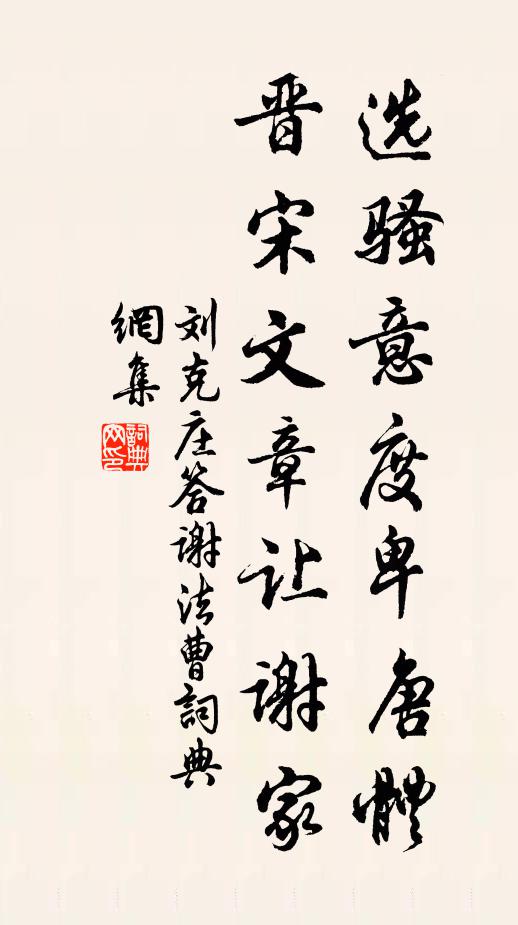 选骚意度卑唐體
晋宋文章让谢家
刘克庄答谢法曹詞典
網集
詞典
网印